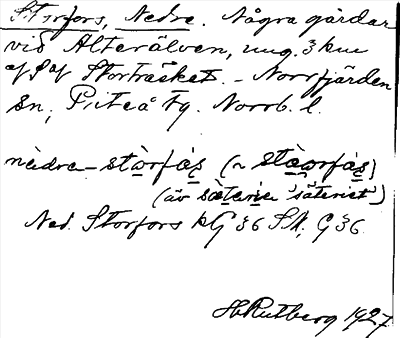 Storfors, Nedre. Några gårdar
vid Alterälven, ung. 3 km
af S af Storträsket. – Norrfjärden
sn, Piteå tg. Norrb. l.
nèdre – stòrfàs̨ (~ stòorfàs̨)
(äv sǟterie 'säteriet')
Ned. Storfors kG 36 SK, G 36.
H Rutberg 1927